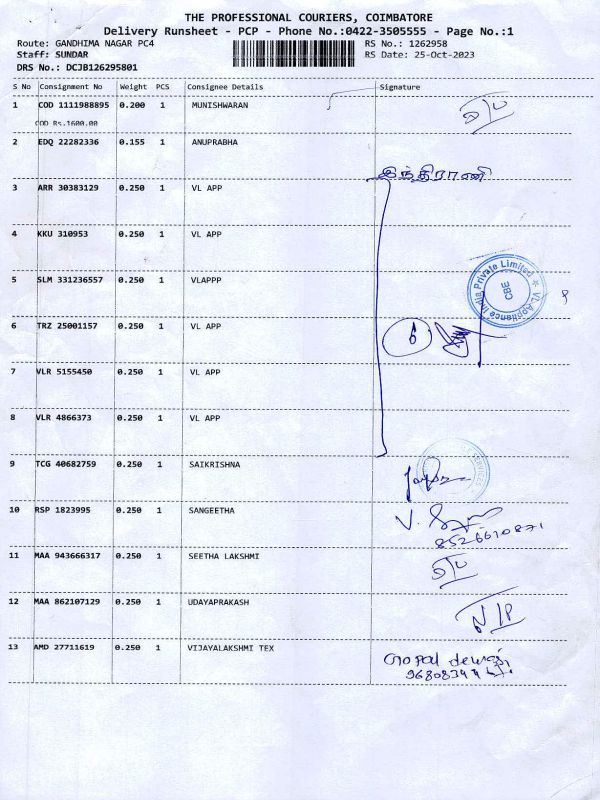 THE PROFESSIONAL COURIERS, COIMBATORE
Delivery Runsheet - PCP - Phone No.:0422-3505555 - Page No.:1
Route: GANDHIMA NAGAR PC4 RS No.: 1262958
Staff: SUNDAR RS Date: 25-Oct-2023
DRS No.: DCJB126295801
S No Consignment No Weight PCS Consignee Details Signature
1 COD 1111988895 0.200 1 MUNISHWARAN
COD Rs.1600.00
2 EDQ 22282336 0.155 1 ANUPRABHA
இந்திராணி
3 ARR 30383129 0.250 1 VL APP
4 KKU 310953 0.250 1 VL APP
5 SLM 331236557 0.250 1 VLAPPP
VL Appliance India Private Limited
CBE
6 TRZ 25001157 0.250 1 VL APP
6
7 VLR 5155450 0.250 1 VL APP
8 VLR 4866373 0.250 1 VL APP
9 TCG 40682759 0.250 1 SAIKRISHNA
10 RSP 1823995 0.250 1 SANGEETHA
V.
8526610871
11 MAA 943666317 0.250 1 SEETHA LAKSHMI
12 MAA 862107129 0.250 1 UDAYAPRAKASH
N/P
13 AMD 27711619 0.250 1 VIJAYALAKSHMI TEX
Gopal